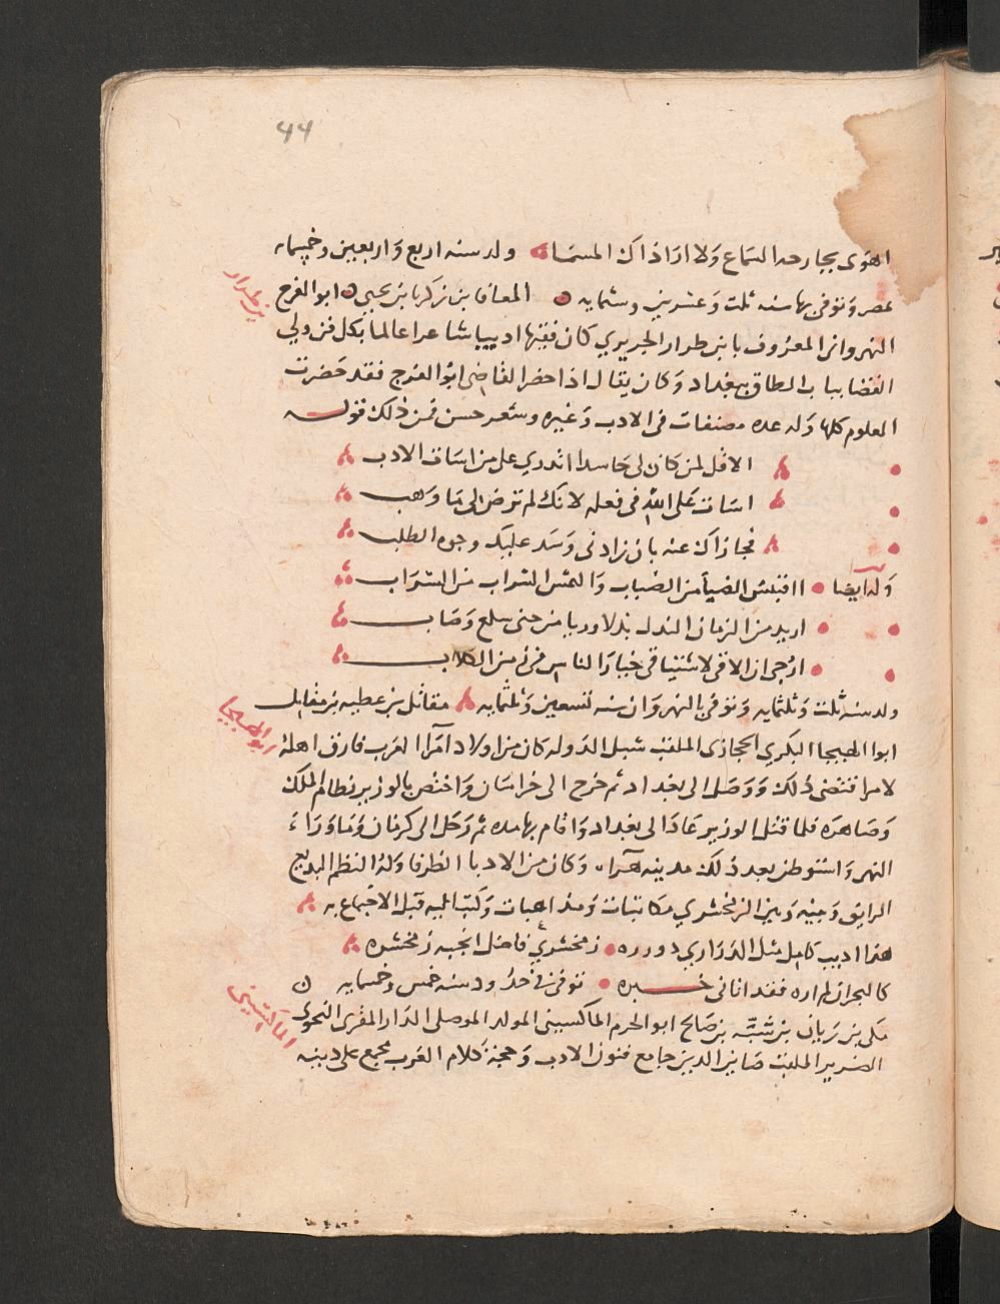 44
الهوى بجار حد السماع ولا اراذاك المسمّا ولد سنه اربع واربعين وخمسمايه
بمصر وتوفى بها سنه ثلث وعشرين وستمايه المعافا بن زكريا بن يحيى ابو الفرج
بن طرار
النهرواني المعروف بابن طرار الجريري كان فقيها اديبا شاعرا عالما بكل فن ولي
القضا بباب الطاق ببغداد وكان يقال اذا حضر القاضى ابو الفرج فقد حضرت
العلوم كلها وله عده مصنفات فى الادب وغيره وشعر حسن فمن ذلك قوله
الا قل لمن كان لى حاسدا اتدري على من اسات الادب
اسات على الله فى فعله لانك لم ترض لى ما وهب
فجازاك عنه بان زادنى وسد عليك وجوه الطلب
وله ايضا ااقتبس الضيا من الضباب والتمس الشراب من السراب
اريد من الزمان النذل بذلا وريا من جنى سلع وصاب
ارجى ان الاقى لاشتياقى خيار الناس فى زمن الكلاب
ولد سنه ثلث وثلثمايه وتوفى بالنهروان سنه تسعين وثلثمايه مقاتل بن عطيه بن مقاتل
ابو الهيجا
ابوا الهيجاا البكري الحجازى الملقب شبل الدوله كان من اولاد امرا العرب فارق اهله
لامر اقتضى ذلك ووصل الى بغداد ثم خرج الى خراسان واختص بالوزير نظام الملك
وصاهره فلما قتل الوزير عاد الى بغداد واقام بها مده ثم رحل الى كرمان وماوراء
النهر واستوطن بعد ذلك مدينه هراه وكان من الادبا الظرفا وله النظم البديع
الرايق وبينه وبين الزمخشري مكاتبات ومداعبات وكتب اليه قبل الاجتماع به
هذا اديب كامل مثل الدراري درره زمخشري فاضل انجبه زمخشره
كالبحر ان لم اره فقد اتانى خبره توفى فى حدود سنه خمس وخمسمايه
مكى بن ريان بن شبّه بن صالح ابو الحرم الماكسيني المولد الموصلى الدار المقرى النحوى
الماكسينى
الضرير الملقب صاين الدين جامع فنون الادب وحجة كلام العرب مجمع على دينه